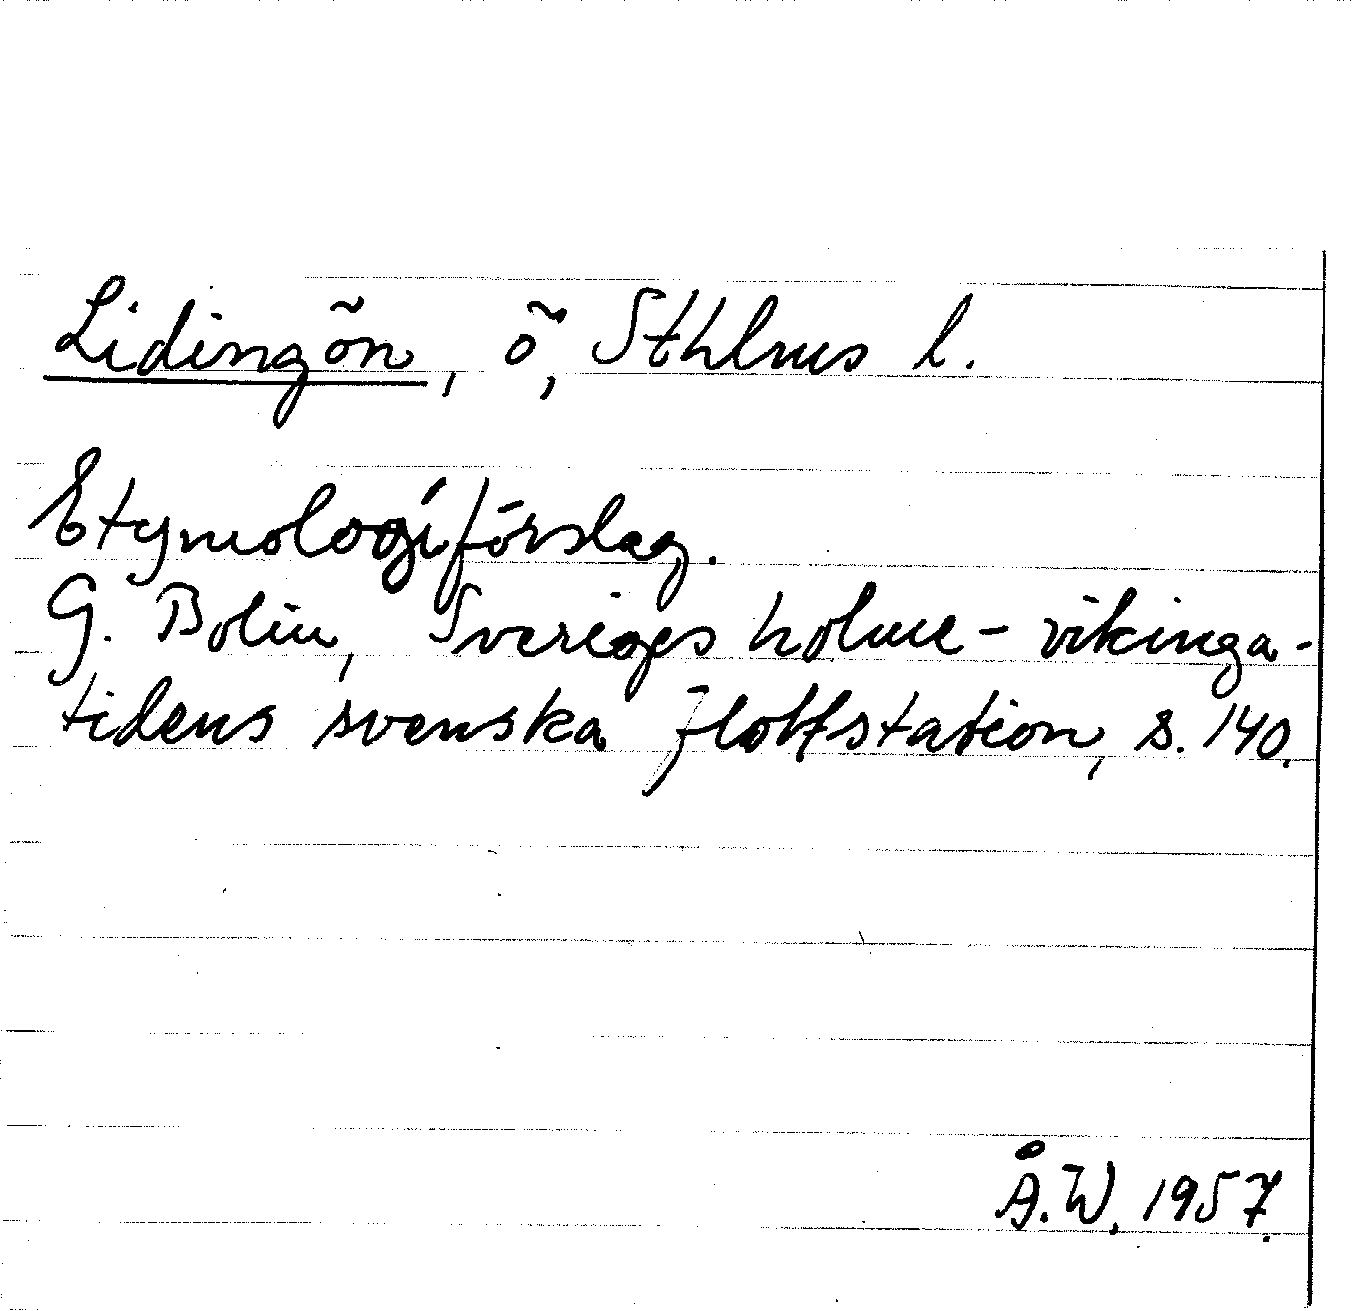 Lidingön, ö, Sthlms l.
Etymologiförslag.
G. Bolin, Sveriges holme - vikinga-
tidens svenska flottstation, s. 140.
Å.W. 1957.